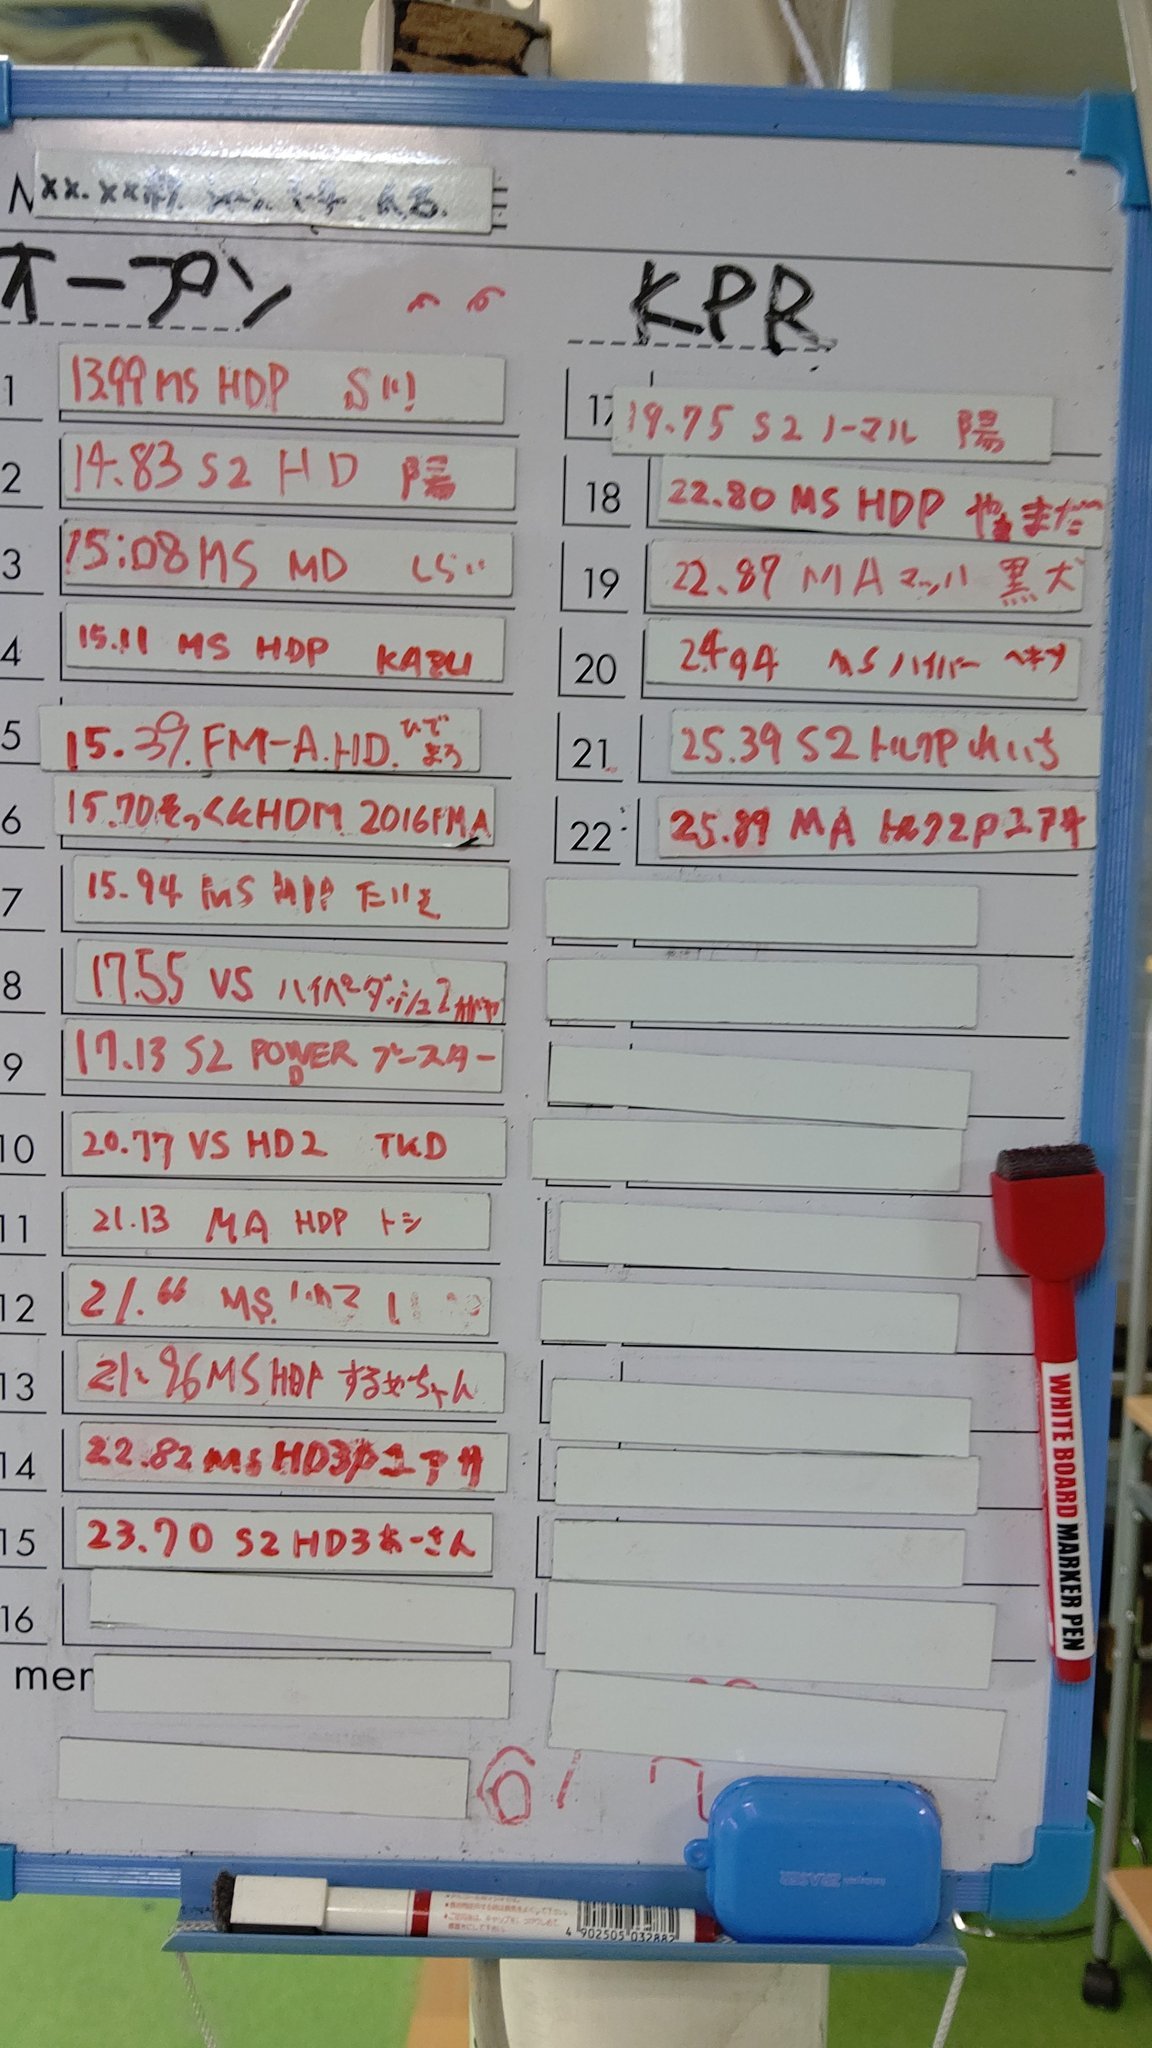 オープン
1 13.99 MS HDP
2 14.83 S2 HD 陽
3 15:08 MS MD
4 15.11 MS HDP KAZU
5 15.39. FM-A.HD. ひで まろ
6 15.70 HDM 2016FMA
7 15.94 MS
8 17.55 VS ハイパーダッシュ2
9 17.13 S2 POWER D ブースター
10 20.77 VS HD2 TKD
11 21.13 MA HDP トシ
12 21.66 MS.
13 21.96 MS HDP するめちゃん
14 22.82 MS HD3 ユアサ
15 23.70 S2 HD3 あーさん
16
KPR
17 19.75 S2 ノーマル 陽
18 22.80 MS HDP やまだ
19 22.87 MA マッハ 黒犬
20 24.94 MS ハイパー
21 25.39 S2 トルクP れいち
22 25.89 MA トルク2P ユアサ
6/7
WHITE BOARD MARKER PEN
4 902505 032882